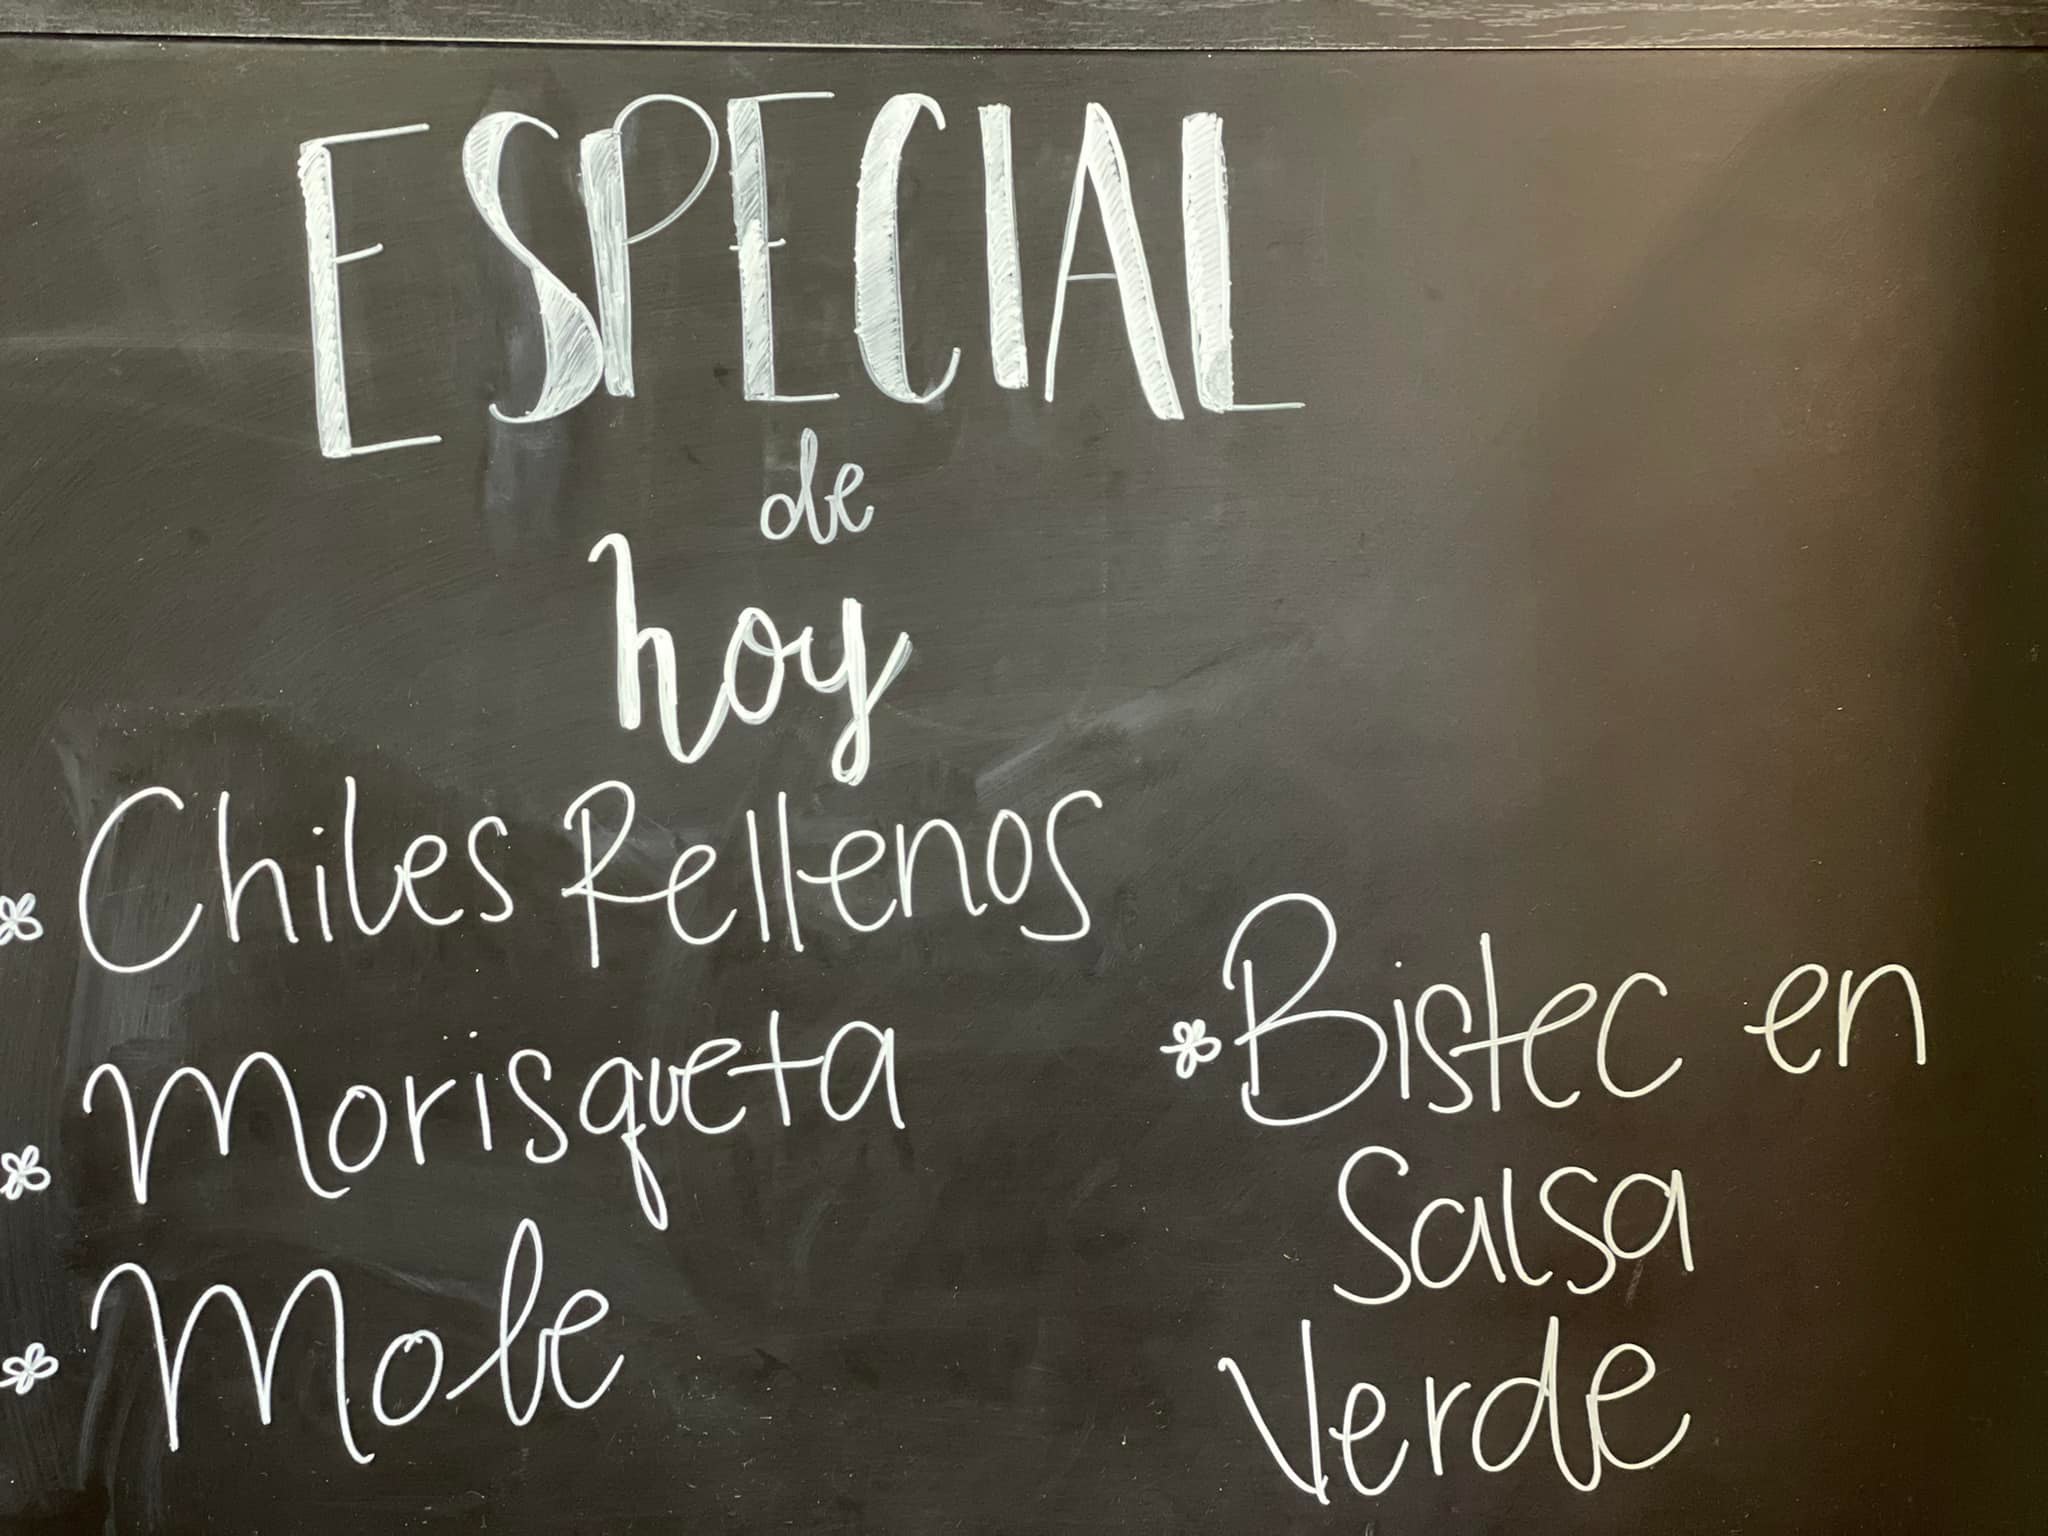 ESPECIAL
de
hoy
* Chiles Rellenos
* Morisqueta
* Mole
* Bistec en
Salsa
Verde